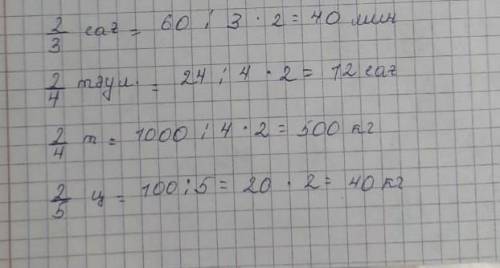 2/3 саг = 60 : 3 · 2 = 40 мин
2/4 = 24 : 4 · 2 = 12 саг
2/4 т = 1000 : 4 · 2 = 500 кг
2/5 ц = 100 : 5 = 20 · 2 = 40 кг